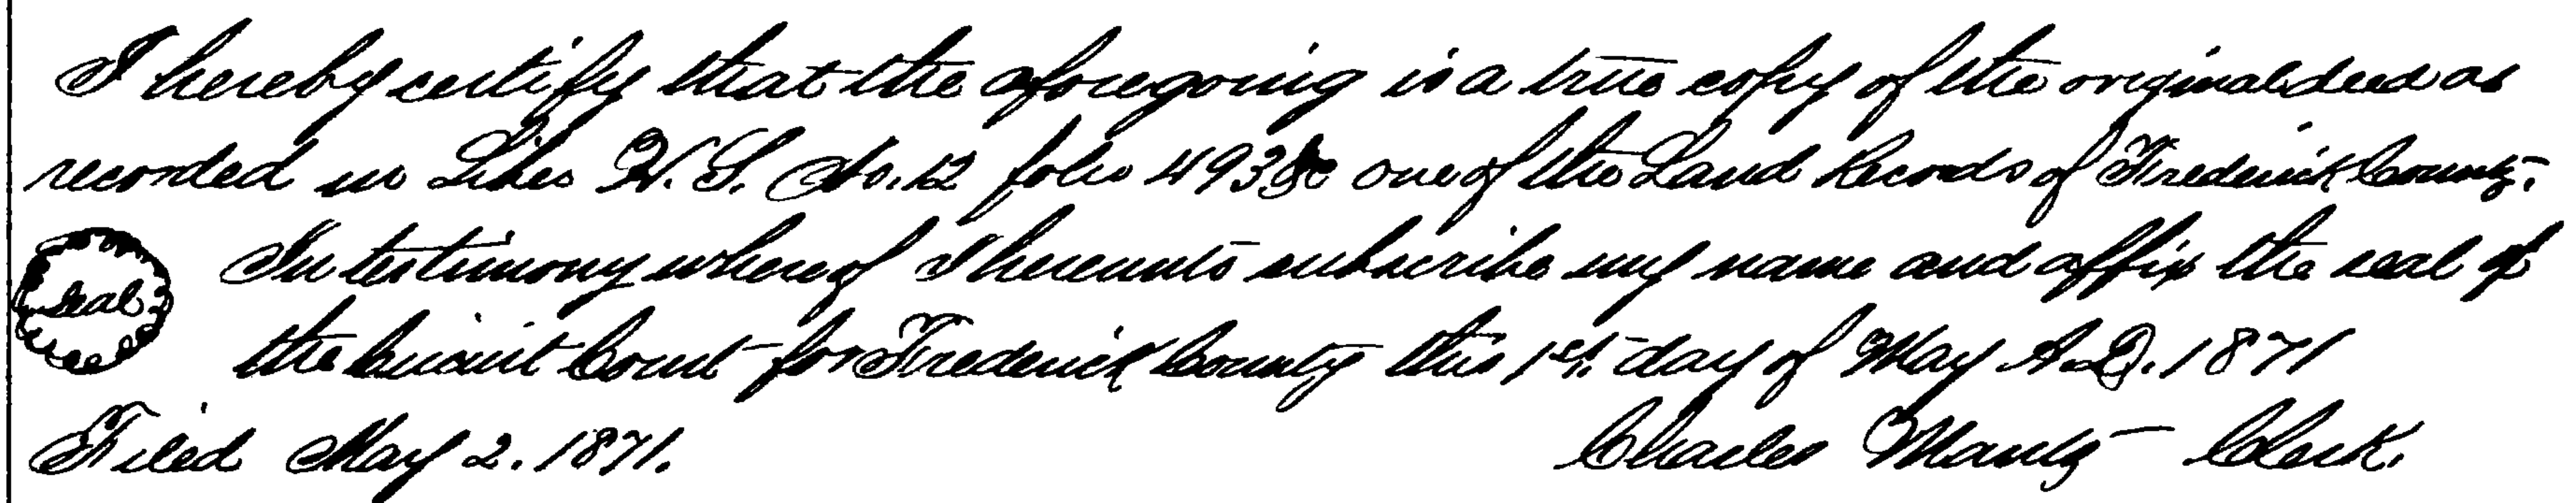 I hereby certify that the aforegoing is a true copy of the original deed as
recorded in Liber W. S. No. 12 folio 493 &c one of the Land Records of Frederick County.
In testimony whereof I hereunto subscribe my name and affix the seal of
Seal
the Circuit Court for Frederick County this 1st. day of May A.D. 1871
Filed May 2. 1871. Charles Mantz Clerk.